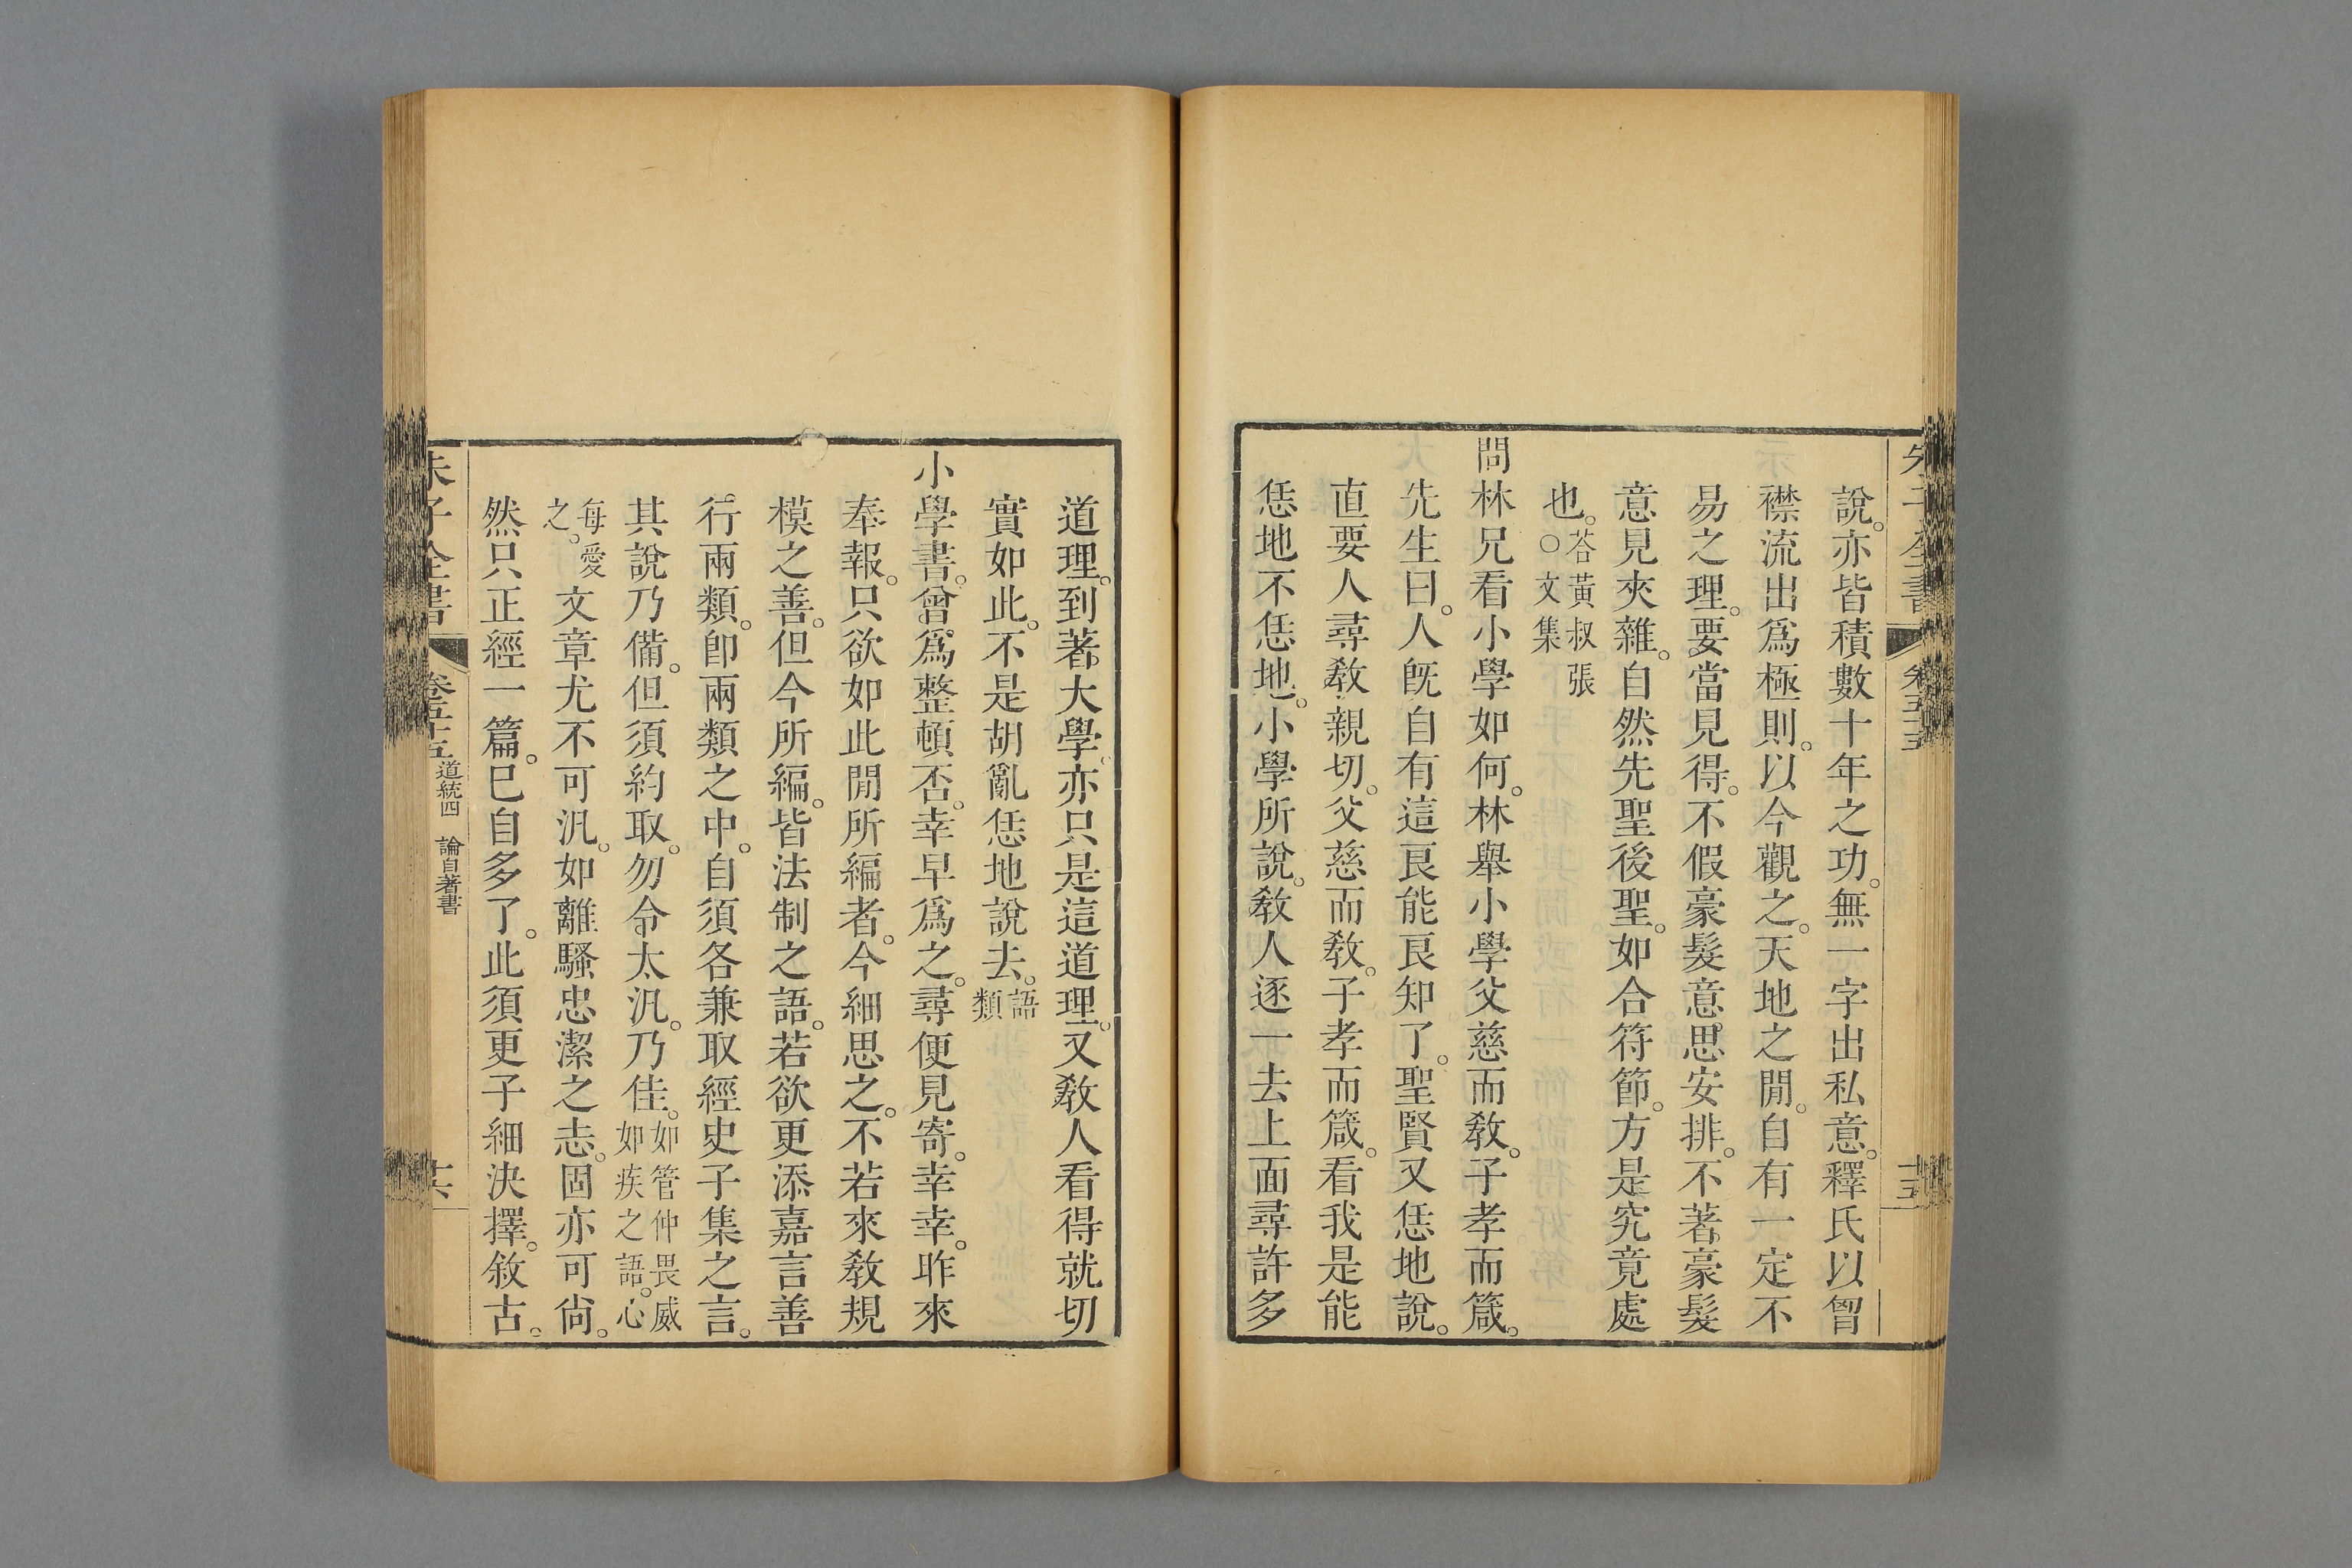 說。亦皆積數十年之功。無一字出私意。釋氏以胷
襟流出爲極則。以今觀之。天地之閒。自有一定不
易之理。要當見得。不假豪髮意思安排。不著豪髮
意見夾雜。自然先聖後聖。如合符節。方是究竟處
也。荅黃叔張○文集
問林兄看小學如何。林舉小學父慈而教。子孝而箴。
先生曰。人旣自有這良能良知了。聖賢又恁地說。
直要人尋教親切。父慈而教。子孝而箴。看我是能
恁地不恁地。小學所說。教人逐一去上面尋許多
道理。到著大學。亦只是這道理。又教人看得就切
實如此。不是胡亂恁地說去。語類
小學書。曾爲整頓否。幸早爲之。尋便見寄。幸幸。昨來
奉報。只欲如此閒所編者。今細思之。不若來教規
模之善。但今所編。皆法制之語。若欲更添嘉言善
行兩類。卽兩類之中。自須各兼取經史子集之言。
其說乃備。但須約取。勿令太汎。乃佳。如管仲畏威如疾之語。心
每愛之。文章尤不可汎。如離騷忠潔之志。固亦可尙。
然只正經一篇。已自多了。此須更子細決擇。敘古。
朱子全書 卷五十五 道統四 論自著書 十六